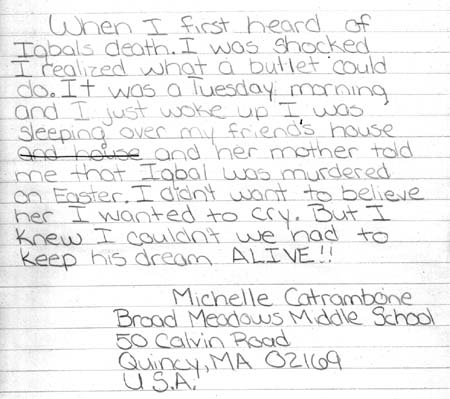 When I first heard of
Iqbals death. I was shocked
I realized what a bullet could
do. It was a Tuesday morning
and I just woke up I was
sleeping over my friend's house
and house and her mother told
me that Iqbal was murdered
on Easter. I didn't want to believe
her I wanted to cry. But I
knew I couldn't we had to
keep his dream ALIVE!!
Michelle Catrambone
Broad Meadows Middle School
50 Calvin Road
Quincy, MA 02169
U.S.A.